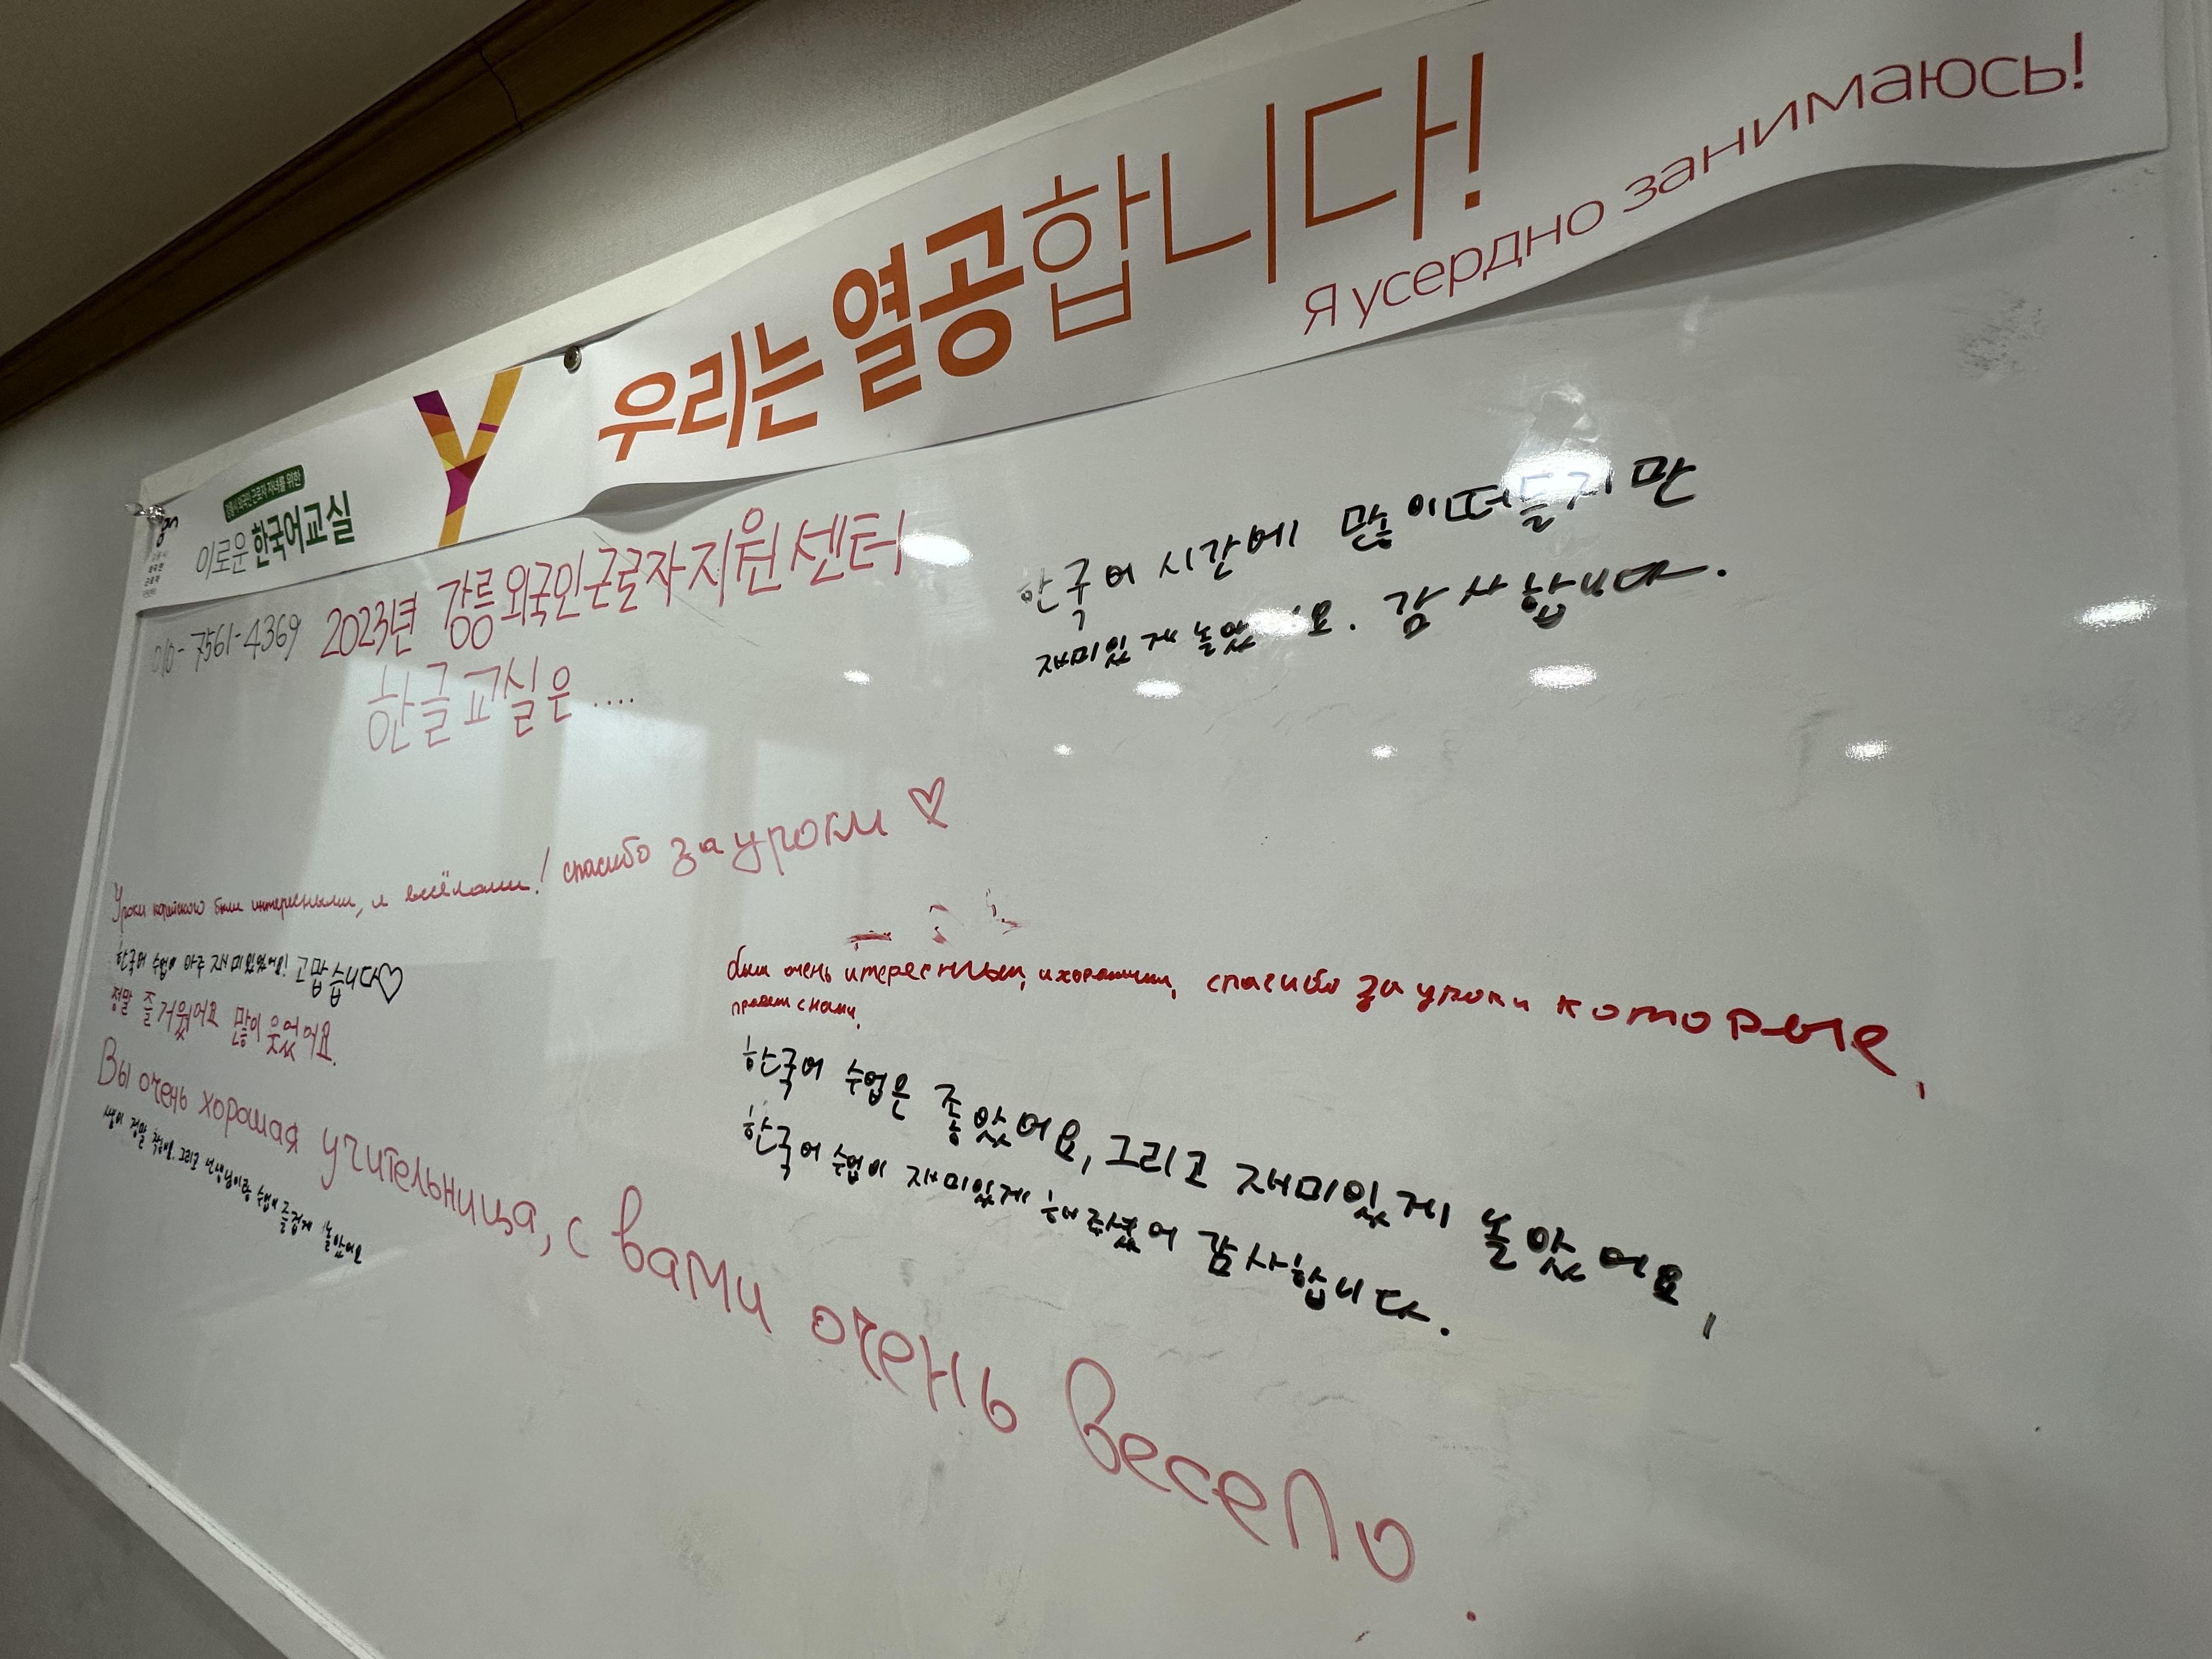 우리는 열공합니다!
Я усердно занимаюсь!
강릉시 외국인 근로자 자녀를 위한
이로운 한국어교실
010-7561-4369 2023년 강릉외국인근로자지원센터
한글교실은 ....
한국어 시간에 많이떠들지만
재미있게 놀았어요. 감사합니다.
Уроки корейского были интересными, и весёлыми! спасибо за уроки ♡
한국어 수업이 아주 재미있었어요! 고맙습니다♡
정말 즐거웠어요 많이 웃었어요.
Вы очень хорошая учительница, с вами очень весело.
정말 그리고 선생님이랑 수업이 즐겁게 놀았어요
были очень итересным, и хорошими, спасибо за уроки которые,
с нами.
한국어 수업은 좋았어요, 그리고 재미있게 놀았어요,
한국어 수업이 재미있게 해주셨어 감사합니다.